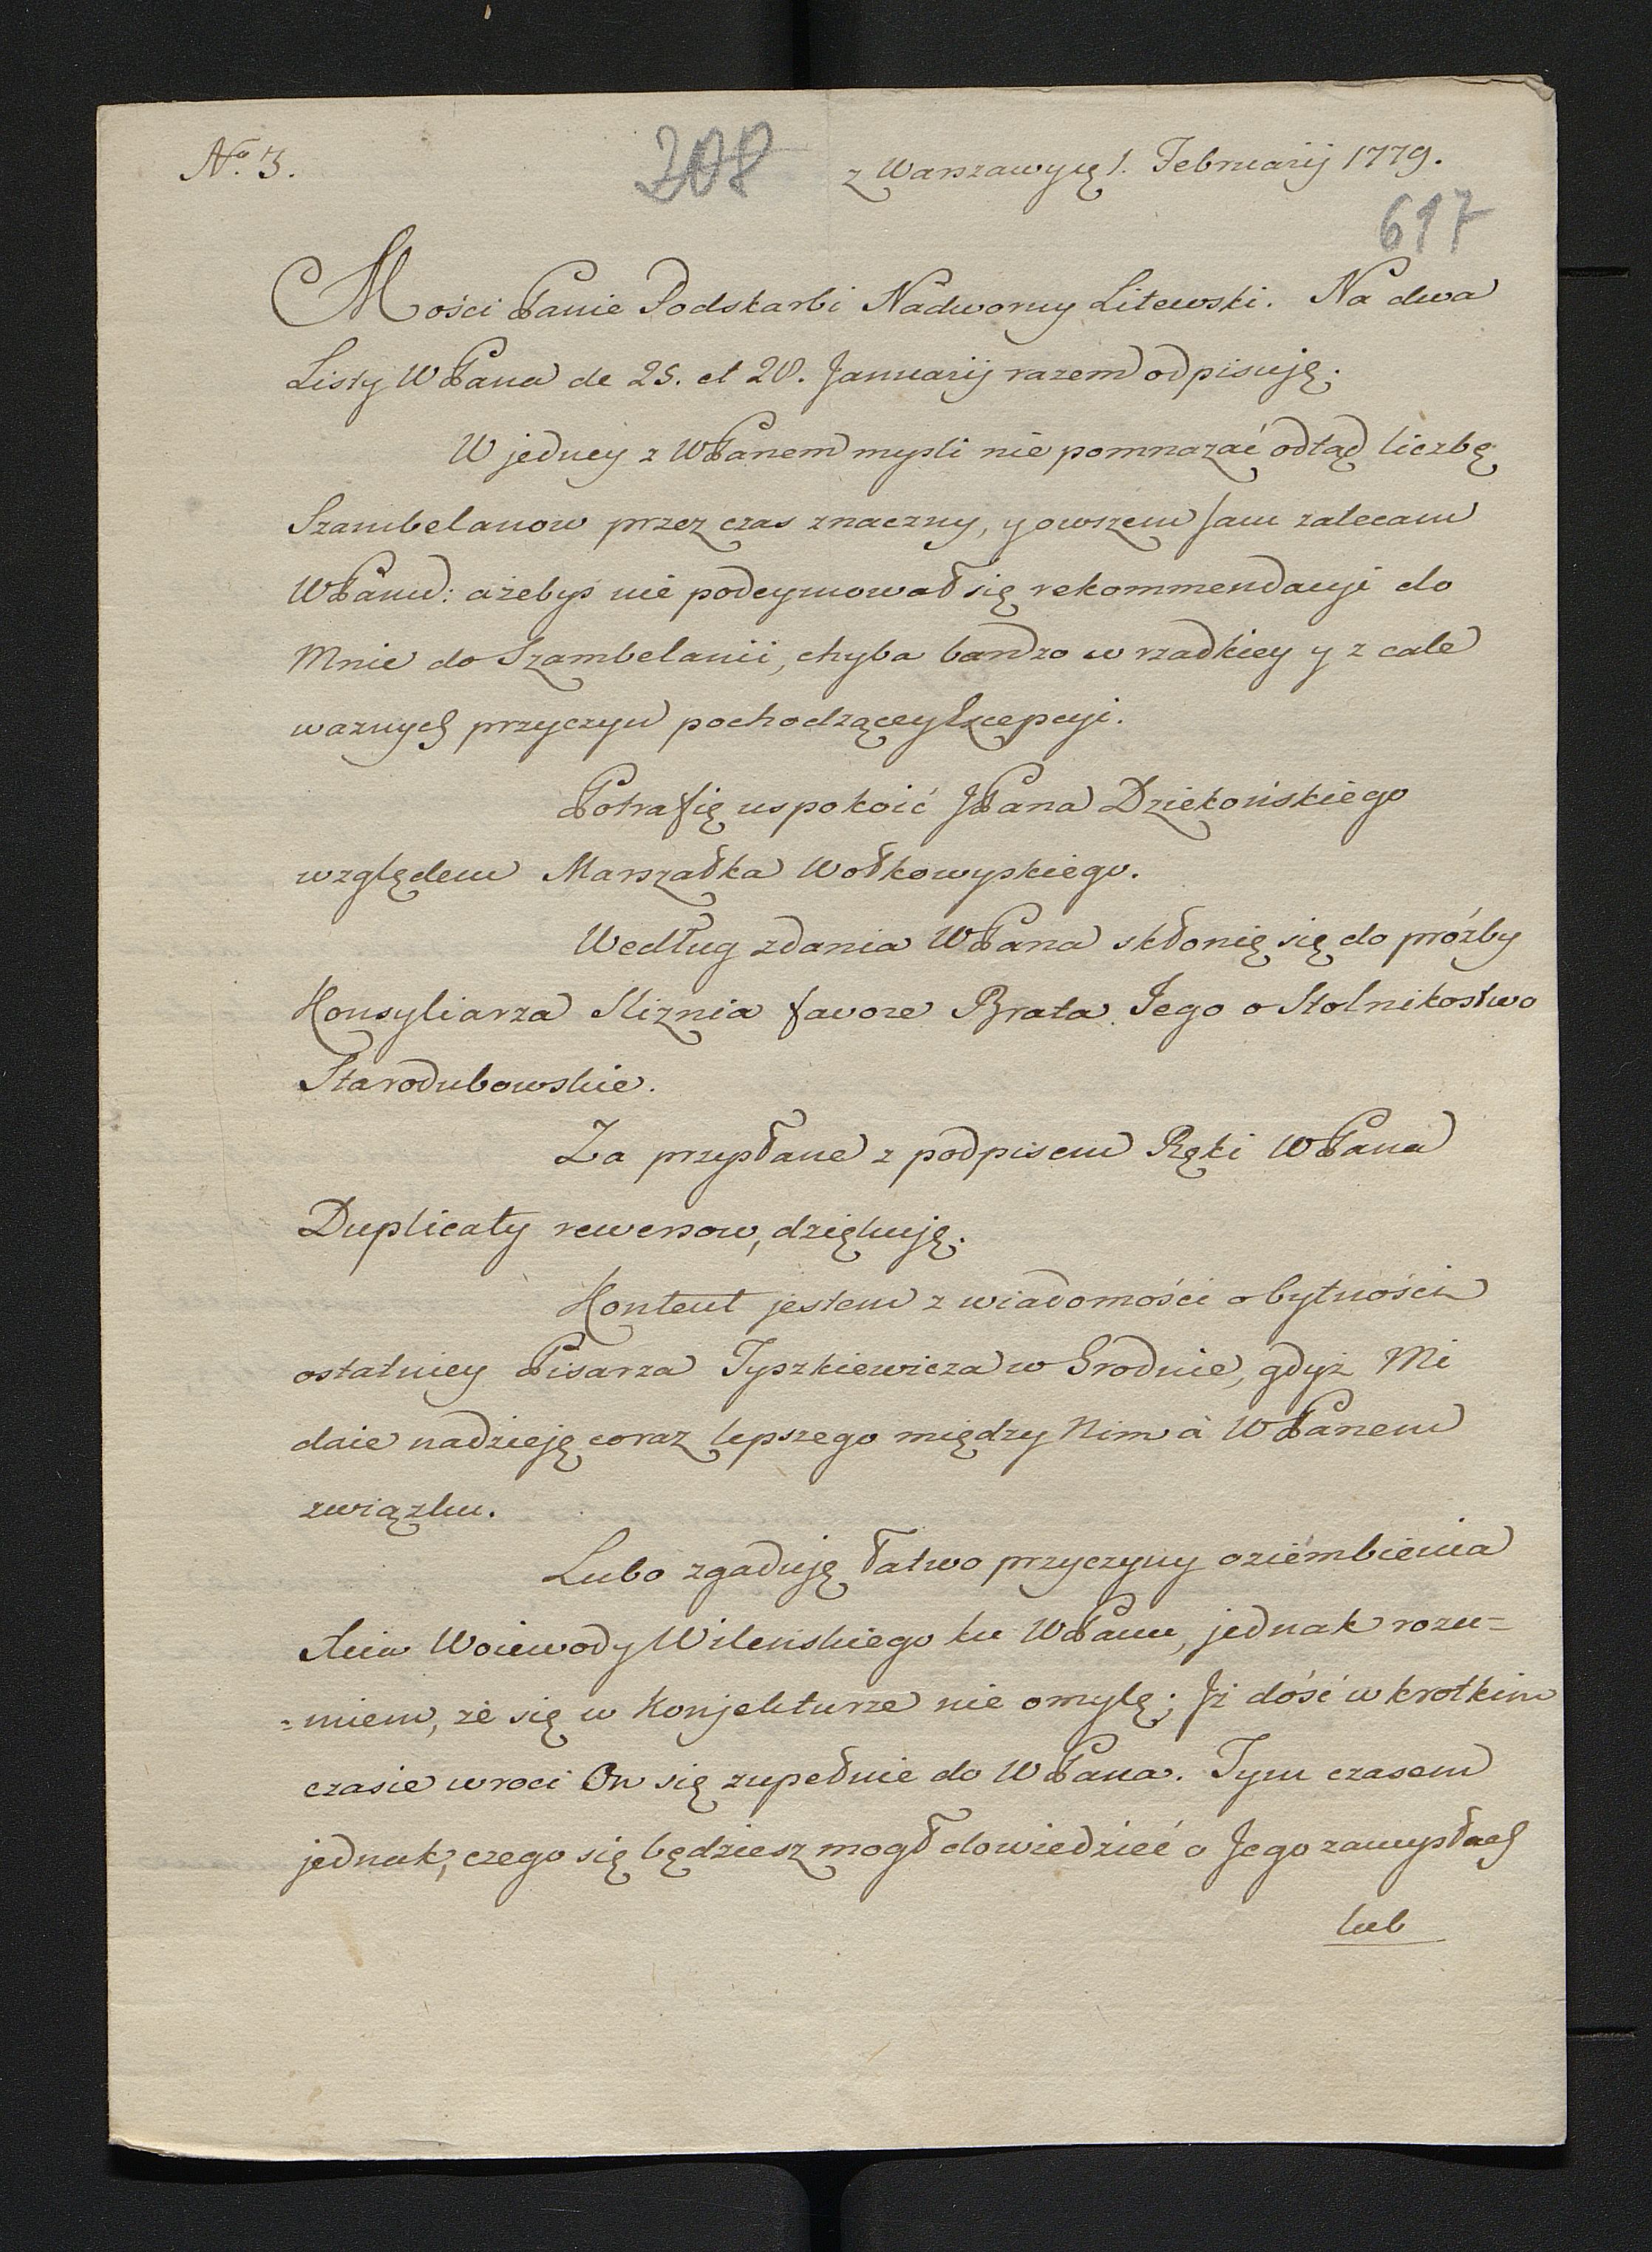 No. 3.
208
z Warszawy 1. Februarij 1779.
617
Mości Panie Podskarbi Nadworny Litewski. Na dwa
Listy WPana de 25. et 28. Januarij razem odpisuję.
W jedney z WPanem mysli nie pomnażać odtąd liczbę
Szambelanow przez czas znaczny, y owszem sam zalecam
WPanu: ażebys nie podeymował się rekommendacyi do
Mnie do Szambelanii, chyba bardzo w rzadkiey y z cale
waznych przyczyn pochodzącey Excepcyi.
Potrafię uspokoić JPana Dziekońskiego
względem Marszałka Wołkowyskiego.
Według zdania WPana skłonię się do próźby
Konsyliarza Sliznia favore Brata Jego o Stolnikostwo
Starodubowskie.
Za przysłane z podpisem Ręki WPana
Duplicaty rewersow, dziękuję.
Kontent jestem z wiadomości o bytności
ostatniey Pisarza Tyszkiewicza w Grodnie, gdyż Mi
daie nadzieję coraz lepszego między Nim à WPanem
związku.
Lubo zgaduję łatwo przyczyny oziembienia
Xcia Woiewody Wileńskiego ku WPanu, jednak rozu=
=miem, że się w Konjekturze nie omylę; Jż dość w krotkim
czasie wroci On się zupełnie do WPana. Tym czasem
jednak, czego się będziesz mogł dowiedzieć o Jego zamysłach
lub